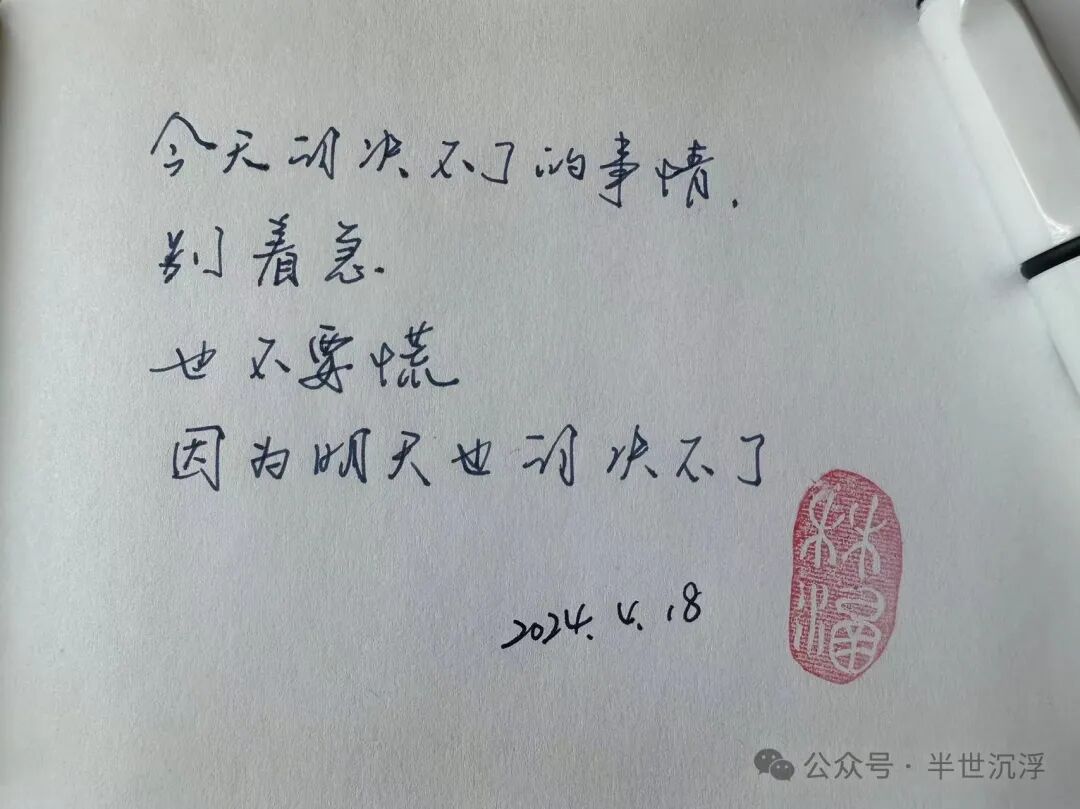 今天解决不了的事情.
别着急.
也不要慌
因为明天也解决不了
2024.4.18
公众号·半世沉浮